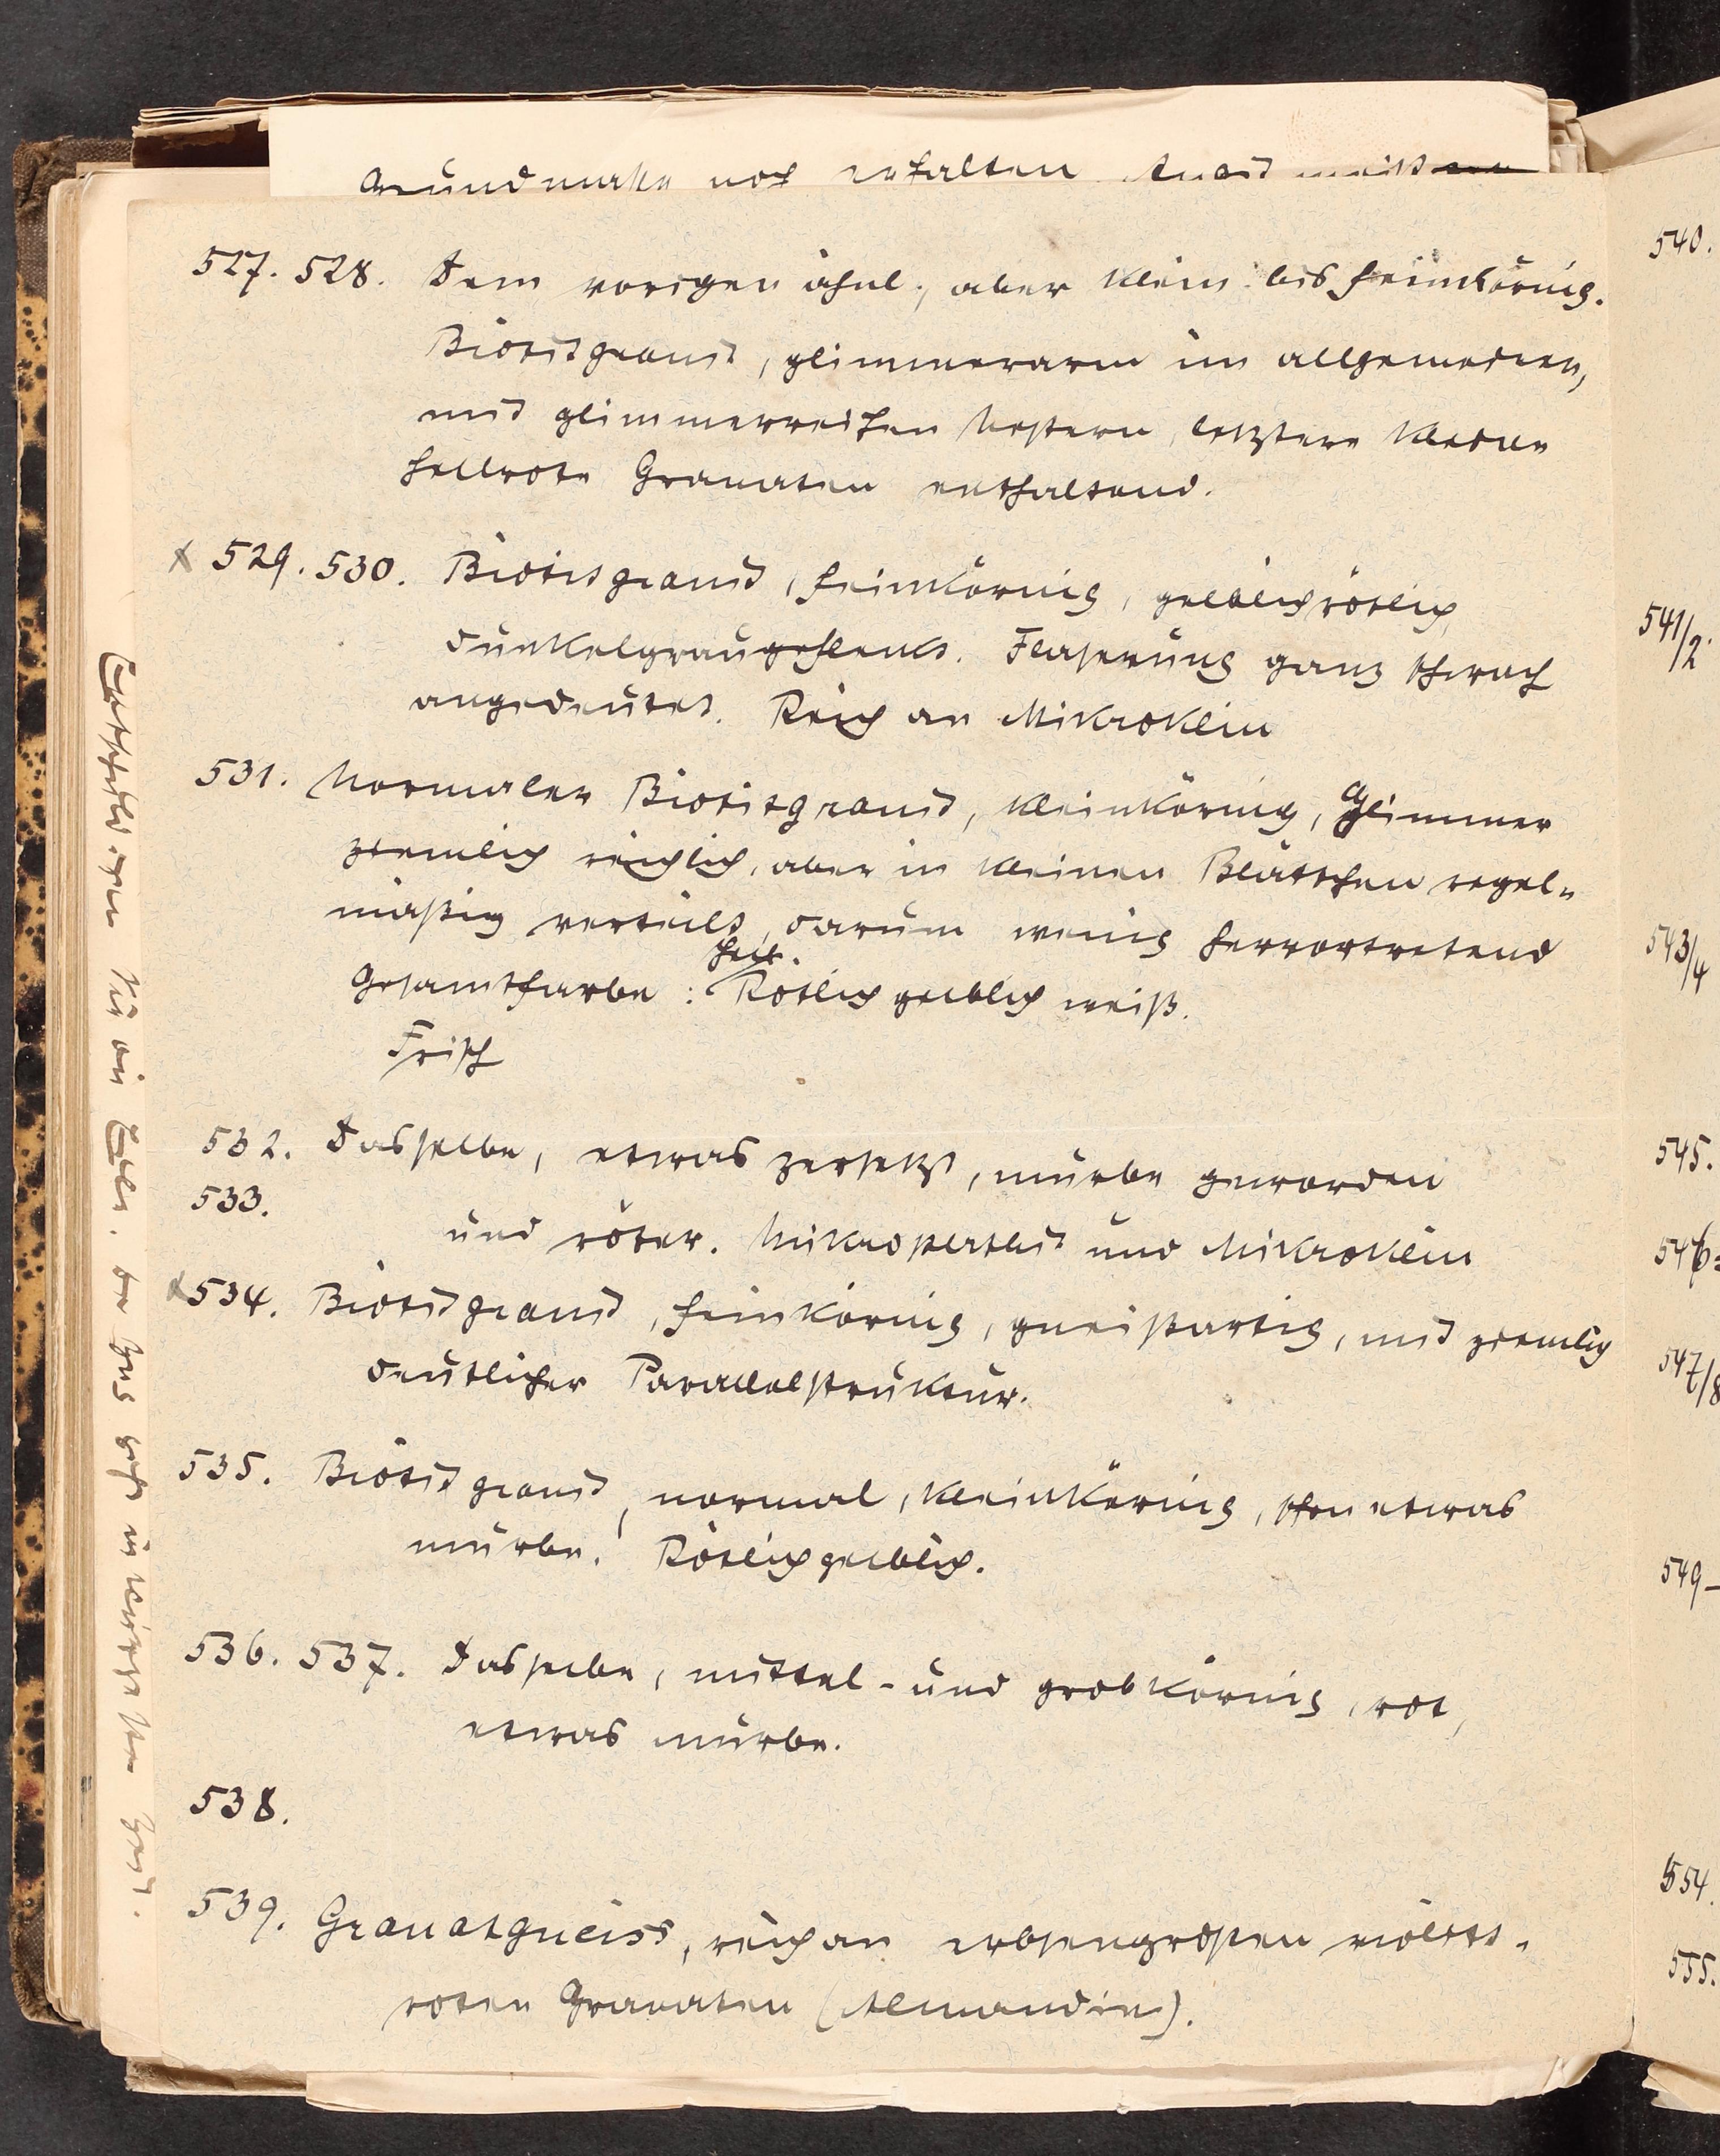 Grundmasse noch erhalten
527. 528. Dem vorigen ähnl., aber klein- bis feinkörnig.
Biotitgranit, glimmerarm im allgemeinen,
mit glimmerreichen Nestern, letztere kleine
hellrote Granaten enthaltend.
x 529. 530. Biotitgranit, feinkörnig, gelblichrötlich,
dunkelgraugefleckt. Flaserung ganz schwach
angedeutet. Reich an Mikroklin
531. Normaler Biotitgranit, kleinkörnig, Glimmer
ziemlich reichlich, aber in kleinen Blättchen regel-
mäßig verteilt, darum wenig hervortretend
hell.
Gesamtfarbe: Rötlich gelblich weiß.
Frisch
532. Dasselbe, etwas zersetzt, mürbe geworden
533.
und röter. Mikroperthit und Mikroklin
x 534. Biotitgranit, feinkörnig, gneißartig, mit ziemlich
deutlicher Parallelstruktur.
535. Biotitgranit, normal, kleinkörnig, schon etwas
mürbe. Rötlichgelblich.
536. 537. Dasselbe, mittel- und grobkörnig, rot,
etwas mürbe.
538.
539. Granatgneiss, reich an erbsengroßen violett-
roten Granaten (Almandin).
540.
541/2.
543/4
545.
546
547/8
549-
554.
555.